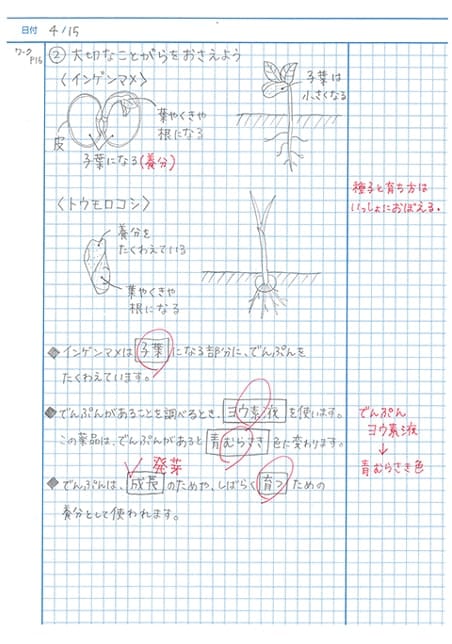 日付 4/15
ワーク
P16
② 大切なことがらをおさえよう
〈インゲンマメ〉
子葉は
小さくなる
葉やくきや
根になる
皮
子葉になる(養分)
種子と育ち方は
いっしょにおぼえる.
〈トウモロコシ〉
養分を
たくわえている
葉やくきや
根になる
◆インゲンマメは 子葉 になる部分に、でんぷんを
たくわえています。
◆でんぷんがあることを調べるとき、ヨウ素液 を使います。
この薬品は、でんぷんがあると 青むらさき 色に変わります。
でんぷん
ヨウ素液
↓
青むらさき色
発芽
◆でんぷんは、成長 のためや、しばらく 育つ ための
養分として使われます。